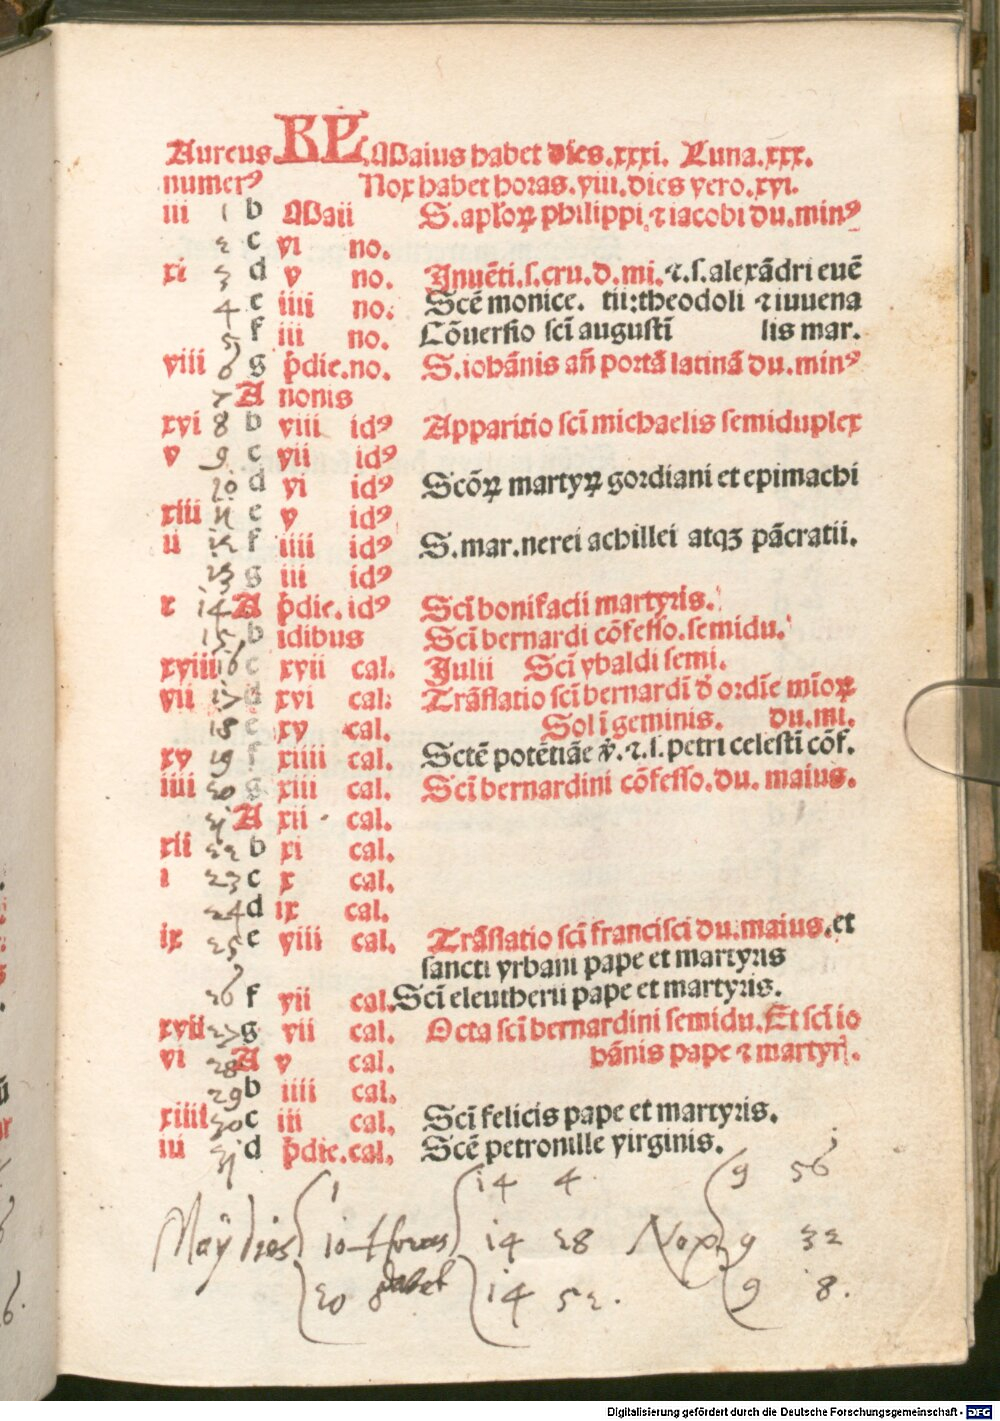 Aureus KL Maius habet dies.xxxi. Luna.xxx.
numerꝰ Nox habet horas.viii.dies vero.xvi.
iii 1 b Maii S.apl'oꝝ philippi ⁊ iacobi du.minꝰ
2 c vi no.
xi 3 d v no. Inuēti.s.cru.d.mi.⁊.s.alexādri euē
4 e iiii no. Scē monice. tii:theodoli ⁊ iuuena
5 f iii no. Cōuersio sci augusti lis mar.
viii 6 g p̄die.no. S.iohānis añ portā latinā du.minꝰ
7 A nonis
xvi 8 b viii idꝰ Apparitio sci michaelis semiduplex
v 9 c vii idꝰ
10 d vi idꝰ Scōꝝ martyꝝ gordiani et epimachi
xiii 11 e v idꝰ
ii 12 f iiii idꝰ S.mar.nerei achillei atqꝫ pācratii.
13 g iii idꝰ
x 14 A p̄die.idꝰ Sci bonifacii martyris.
15 b idibus Sci bernardi cōfesso.semidu.
xviii 16 c xvii cal. Julii Sci vbaldi semi.
vii 17 d xvi cal. Trāslatio sci bernardi d' ordīe mīoꝝ
18 e xv cal. Sol ī geminis. du.mi.
xv 19 f xiiii cal. Sctē potētiāe v̄.⁊.s.petri celesti cōf.
iiii 20 g xiii cal. Sci bernardini cōfesso.du.maius.
21 A xii cal.
xii 22 b xi cal.
i 23 c x cal.
24 d ix cal.
ix 25 e viii cal. Trāslatio sci francisci du.maius.et
sancti vrbani pape et martyris
26 f vii cal. Sci eleutherii pape et martyris.
xvii 27 g vii cal. Octa sci bernardini semidu.Et sci io
vi 28 A v cal. hānis pape ⁊ martyr.
29 b iiii cal.
xiiii 30 c iii cal. Sci felicis pape et martyris.
iii 31 d p̄die.cal. Scē petronille virginis.
1 14 4 9 56
Maÿ dies 10 Horas 14 28 Nox 9 32
20 habet 14 52. 9 8.
Digitalisierung gefördert durch die Deutsche Forschungsgemeinschaft - DFG